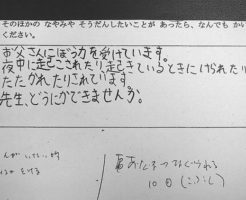 そのほかの なやみや そうだんしたいことが あったら、なんでも かい
ください。
お父さんにぼう力を受けています。
夜中に起こされたり起きているときにけられたり
たたかれたりされています。
先生、どうにかできませんか。
あたまをなぐられる
10回(こぶし)